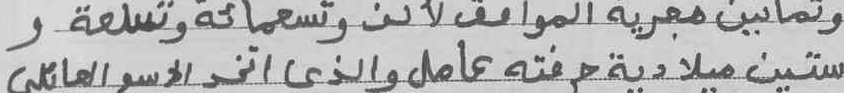 وثمانين هجرية الموافق لألف وتسعمائة وتسعة و
ستين ميلادية حرفته عامل والذي اتخذ الاسم العائلي